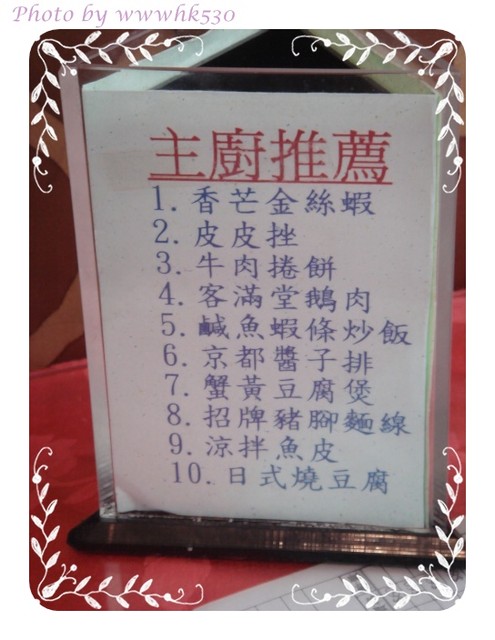 Photo by wwwhk530
主廚推薦
1. 香芒金絲蝦
2. 皮皮挫
3. 牛肉捲餅
4. 客滿堂鵝肉
5. 鹹魚蝦條炒飯
6. 京都醬子排
7. 蟹黃豆腐煲
8. 招牌豬腳麵線
9. 涼拌魚皮
10. 日式燒豆腐